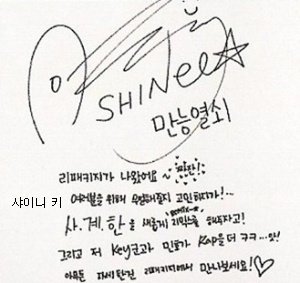 SHINee☆
만능열쇠
리패키지가 나왔어요~ 짜잔!
여러분을 위해 고민하다가!...
샤이니 키
REMIX
사.계.한을 새롭게 리믹스를 해주자고!
그리고 저 Key군과 민호가 Rap을 더 ㅋㅋ...앗!
아무튼 자세한건 리패키지에서 만나보세요!♡